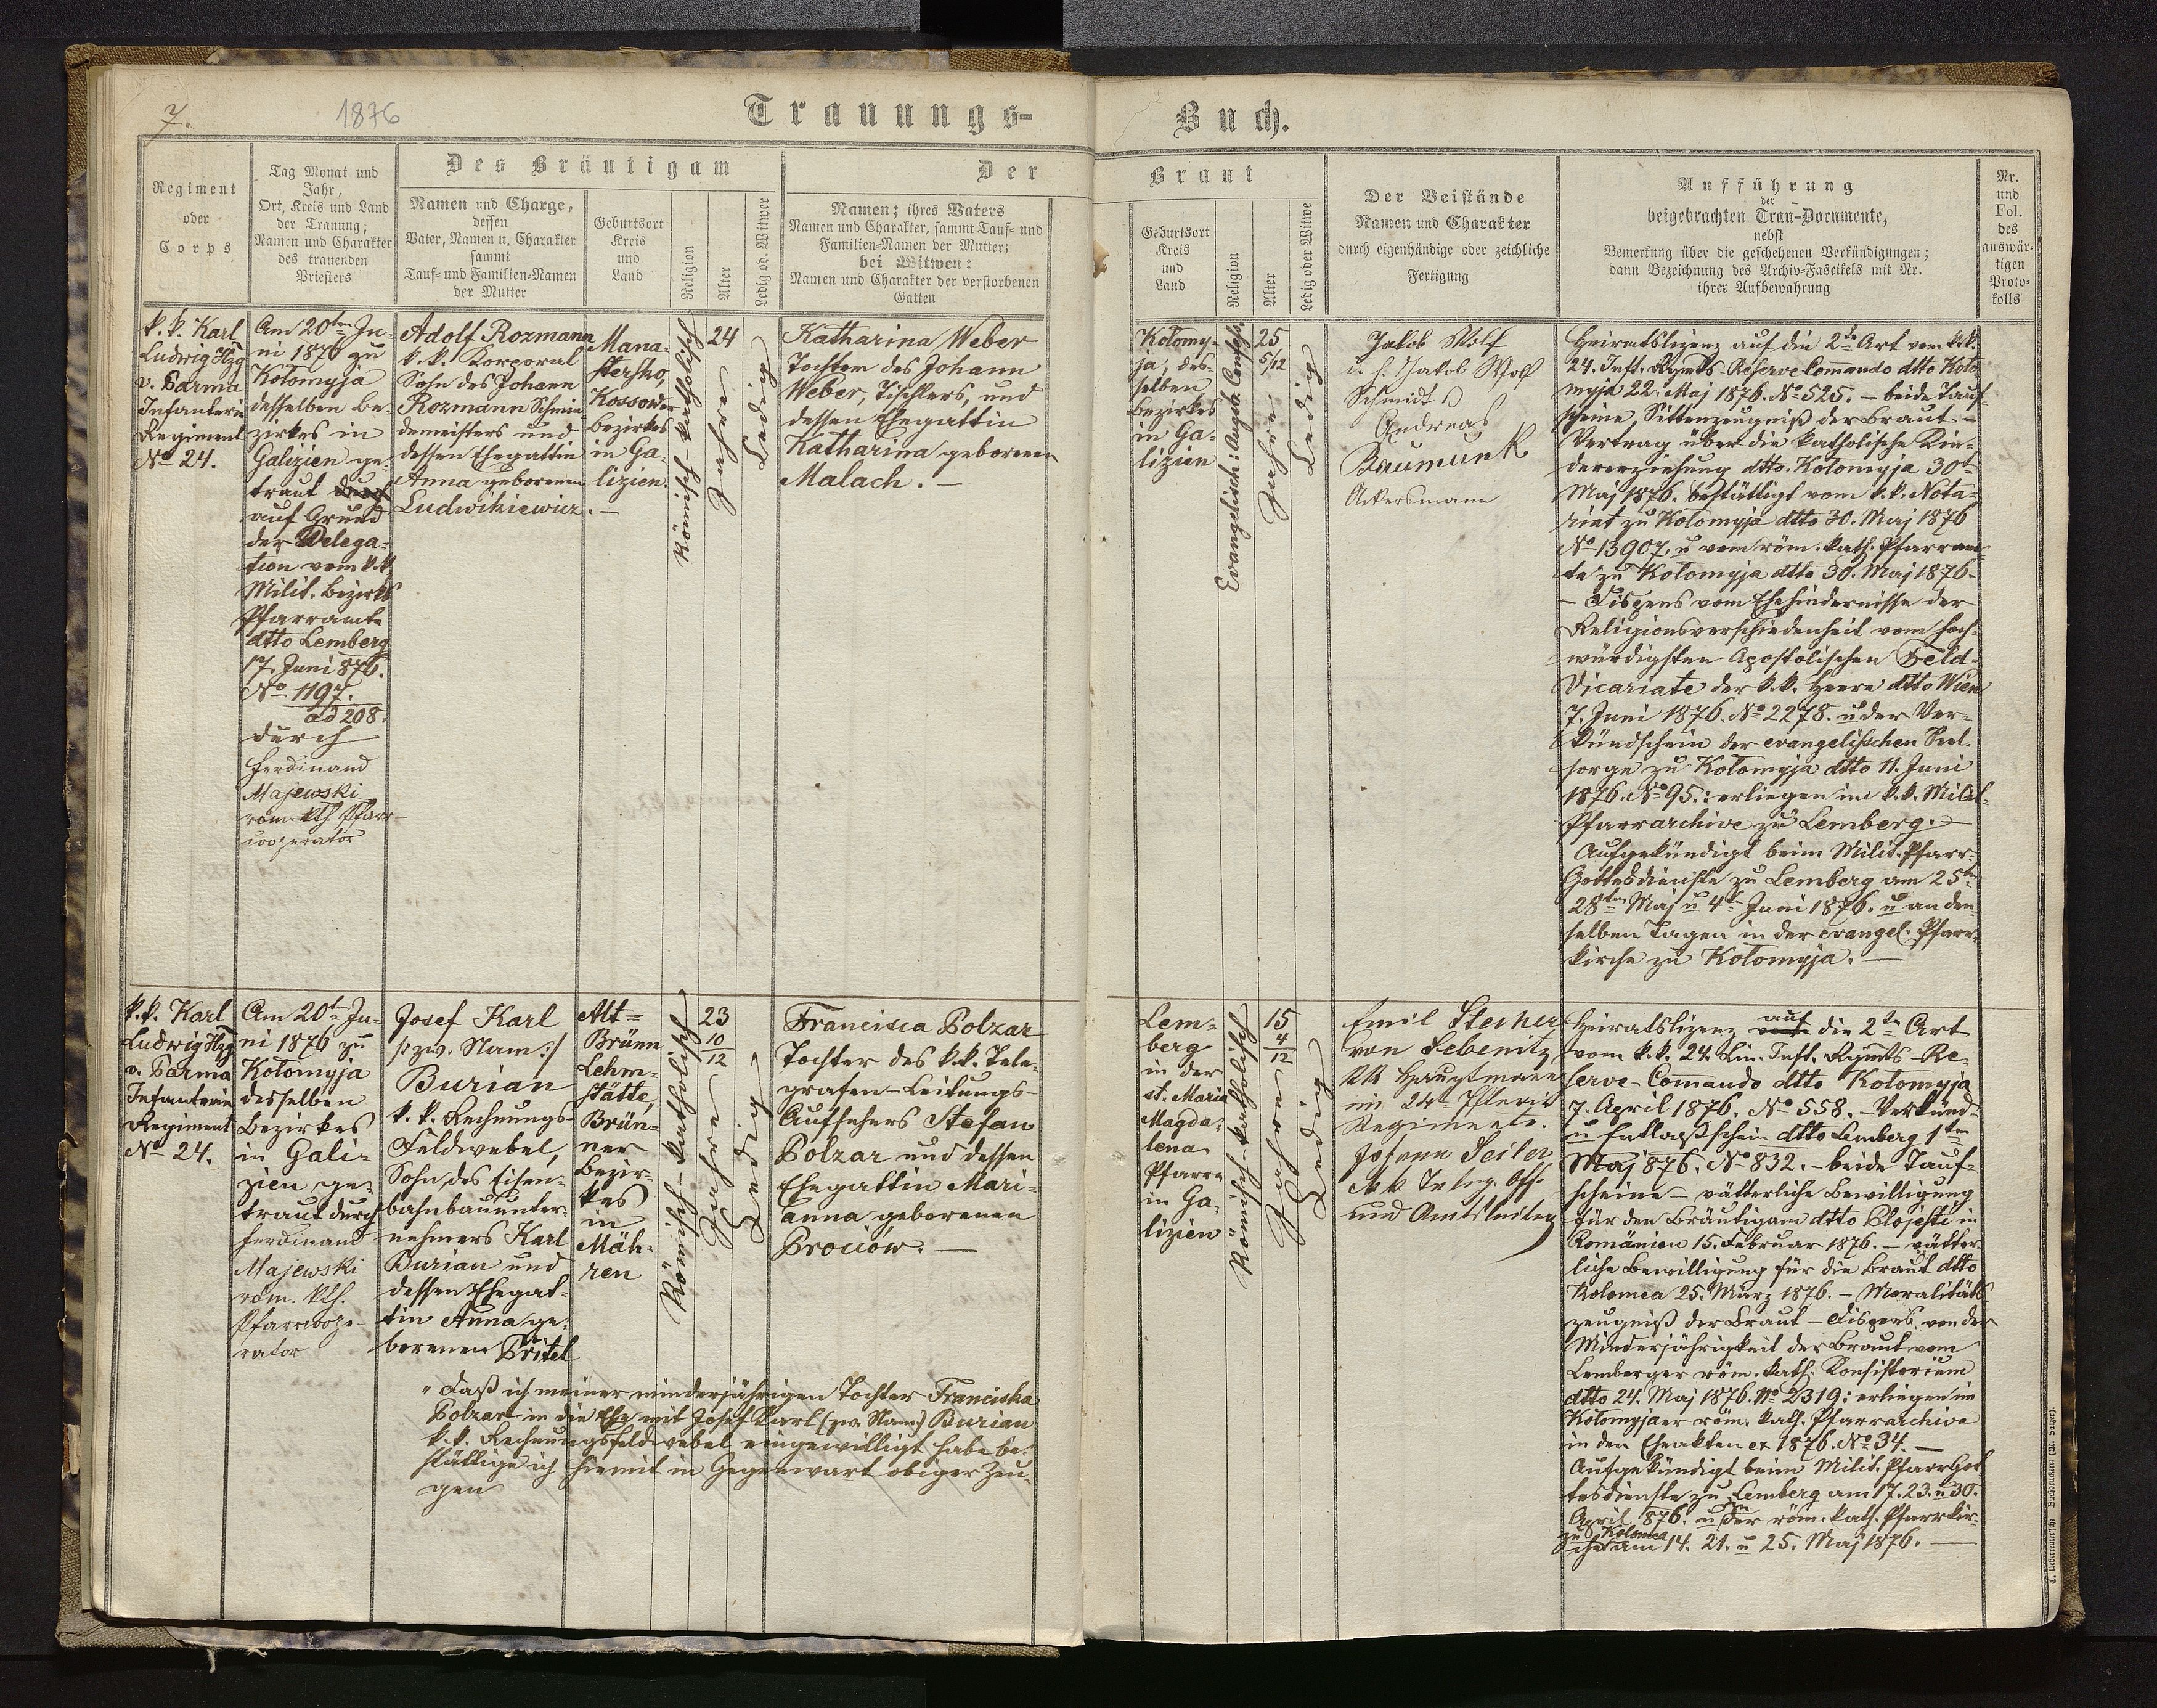 7.
1876
Trauungs-
Buch.
Regiment
oder
Corps
Tag Monat und
Jahr,
Ort, Kreis und Land
der Trauung;
Namen und Charakter
des trauenden
Priesters
Des Bräutigam
Namen und Charge,
dessen
Vater, Namen u. Charakter
sammt
Tauf- und Familien-Namen
der Mutter
Geburtsort
Kreis
und
Land
Religion
Alter
Ledig od. Witwer
Der
Namen; ihres Vaters
Namen und Charakter, sammt Tauf- und
Familien-Namen der Mutter;
bei Witwen:
Namen und Charakter der verstorbenen
Gatten
Braut
Geburtsort
Kreis
und
Land
Religion
Alter
Ledig oder Witwe
Der Beistände
Namen und Charakter
durch eigenhändige oder zeichliche
Fertigung
Aufführung
der
beigebrachten Trau-Documente,
nebst
Bemerkung über die geschehenen Verkündigungen;
dann Bezeichnung des Archiv-Fascikels mit Nr.
ihrer Aufbewahrung
Nr.
und
Fol.
des
auswär-
tigen
Proto-
kolls
k. k. Karl
Ludwig Hzg
v. Parma
Infanterie
Regiment
No 24.
Am 20ten Ju-
ni 1876 zu
Kołomyja
desselben Be-
zirkes in
Galizien ge-
traut durch
auf Grund
der Delega-
tion vom k.k.
Milit. Bezirks
Pfarramte
dtto Lemberg
17. Juni 876.
No 1197.
ad 208.
durch
Ferdinand
Majewski
röm. kth. Pfarr-
cooperator
Adolf Rozmann
k. k. Korporal
Sohn des Johann
Rozmann Schmie-
demeisters und
dessen Ehegattin
Anna geborenen
Ludwikiewicz. —
Mana-
stersko,
Kossower
Bezirkes
in Ga-
lizien.
Römisch-katholisch
24
Jahre
Ledig
Katharina Weber
Tochter des Johann
Weber, Tischlers, und
dessen Ehegattin
Katharina geborenen
Malach. —
Kołomy-
ja, des-
selben
Bezirkes
in Ga-
lizien
Evangelisch: Augsb. Confess.
25
5/12
Jahre
Ledig
Jakob Wolf
d. h. Jakob Wolf
Schmidt
Andreas
Baumunk
Ackersmann
Heiratslizenz auf die 2te Art vom k.k.
24. Inft. Rgmts. Reserve Comando dtto Koło-
myja 22. Maj 1876. No 525. — beide Tauf-
scheine, Sittenzeugniß der Braut —
Vertrag über die katholische Kin-
dererziehung dtto. Kołomyja 30t
Maj 1876. bestättigt vom k.k. Nota-
riat zu Kołomyja dtto 30. Maj 1876
No 13907. u vom röm. kath. Pfarram-
te zu Kołomyja dtto 30. Maj 1876 —
— Dispens vom Ehehindernisse der
Religionsverschiedenheit vom hoch-
würdigsten Apostolischen Feld-
Vicariate der k.k. Heere dtto Wien
7. Juni 1876. No 2278. u der Ver-
kündschein der evangelischen Seel-
sorge zu Kołomyja dtto 11. Juni
1876. No 95.: erliegen im k.k. Milit-
Pfarrarchive zu Lemberg. —
Aufgekündigt beim Milit. Pfarr-
Gottesdienste zu Lemberg am 25ten
28ten Maj u 4ten Juni 1876. u an den-
selben Tagen in der evangel. Pfarr-
kirche zu Kołomyja. —
k. k. Karl
Ludwig Hzg
v. Parma
Infanterie
Regiment
No 24.
Am 20t Ju-
ni 1876 zu
Kołomyja
desselben
Bezirkes
in Gali-
zien ge-
traut durch
Ferdinand
Majewski
röm. kth.
Pfarrcoope-
rator
Josef Karl
/: zw. Nam :/
Burian
k. k. Rechnungs-
Feldwebel,
Sohn des Eisen-
bahnbauunter-
nehmers Karl
Burian und
dessen Ehegat-
tin Anna ge-
borenen Přitel
Alt=
Brünn
Lehm-
stätte,
Brün-
ner
Bezir-
kes
in
Mäh-
ren
Römisch-katholisch
23
10/12
Jahre
Ledig
Francisca Polzar
Tochter des k.k. Tele-
grafen-Leitungs-
Aufsehers Stefan
Polzar und dessen
Ehegattin Mari-
anna geborenen
Prociów. —
„Daß ich meiner minderjährigen Tochter Franciska
Polzar in die Ehe mit Josef Karl (zw. Nam) Burian
k.k. Rechnungsfeldwebel eingewilligt habe be-
stättige ich hiemit in Gegenwart obiger Zeu-
gen
Lem-
berg
in der
st. Maria
Magda-
lena
Pfarre
in Ga-
lizien
Römisch-katholisch
15
4/12
Jahre
Ledig
Emil Stecher
von Sebenitz
kk Hauptmann
im 24
Regimente.
Johann Seiler
kk Teleg. Off.
und Amtsleiter
Heiratslizenz auf die 2te Art
vom k.k. 24. Lin. Inft. Rgmts - Re-
serve-Comando dtto Kołomyja
7. April 1876. No 558. — Verkünd-
u Entlaßschein dtto Lemberg 1ten
Maj 876. No 832. — beide Tauf-
scheine — vätterliche Bewilligung
für den Bräutigam dtto Plojesti in
Romänien 15. Februar 1876. — vätter-
liche Bewilligung für die Braut dtto
Kolomea 25. März 1876. — Moralitäts-
zeugniß der Braut — Dispens von der
Minderjährigkeit der Braut vom
Lemberger röm. kath. Konsistorium
dtto 24. Maj 1876. No 2319: erliegen im
Kołomyjaer röm. kath. Pfarrarchive
in den Eheakten ex 1876. No 34. —
Aufgekündigt beim Milit. Pfarrgot-
tesdienste zu Lemberg am 17. 23. u 30.
April 876. u der röm. kath. Pfarrkir-
che zu Kolomea am 14. 21. u 25. Maj 1876. —